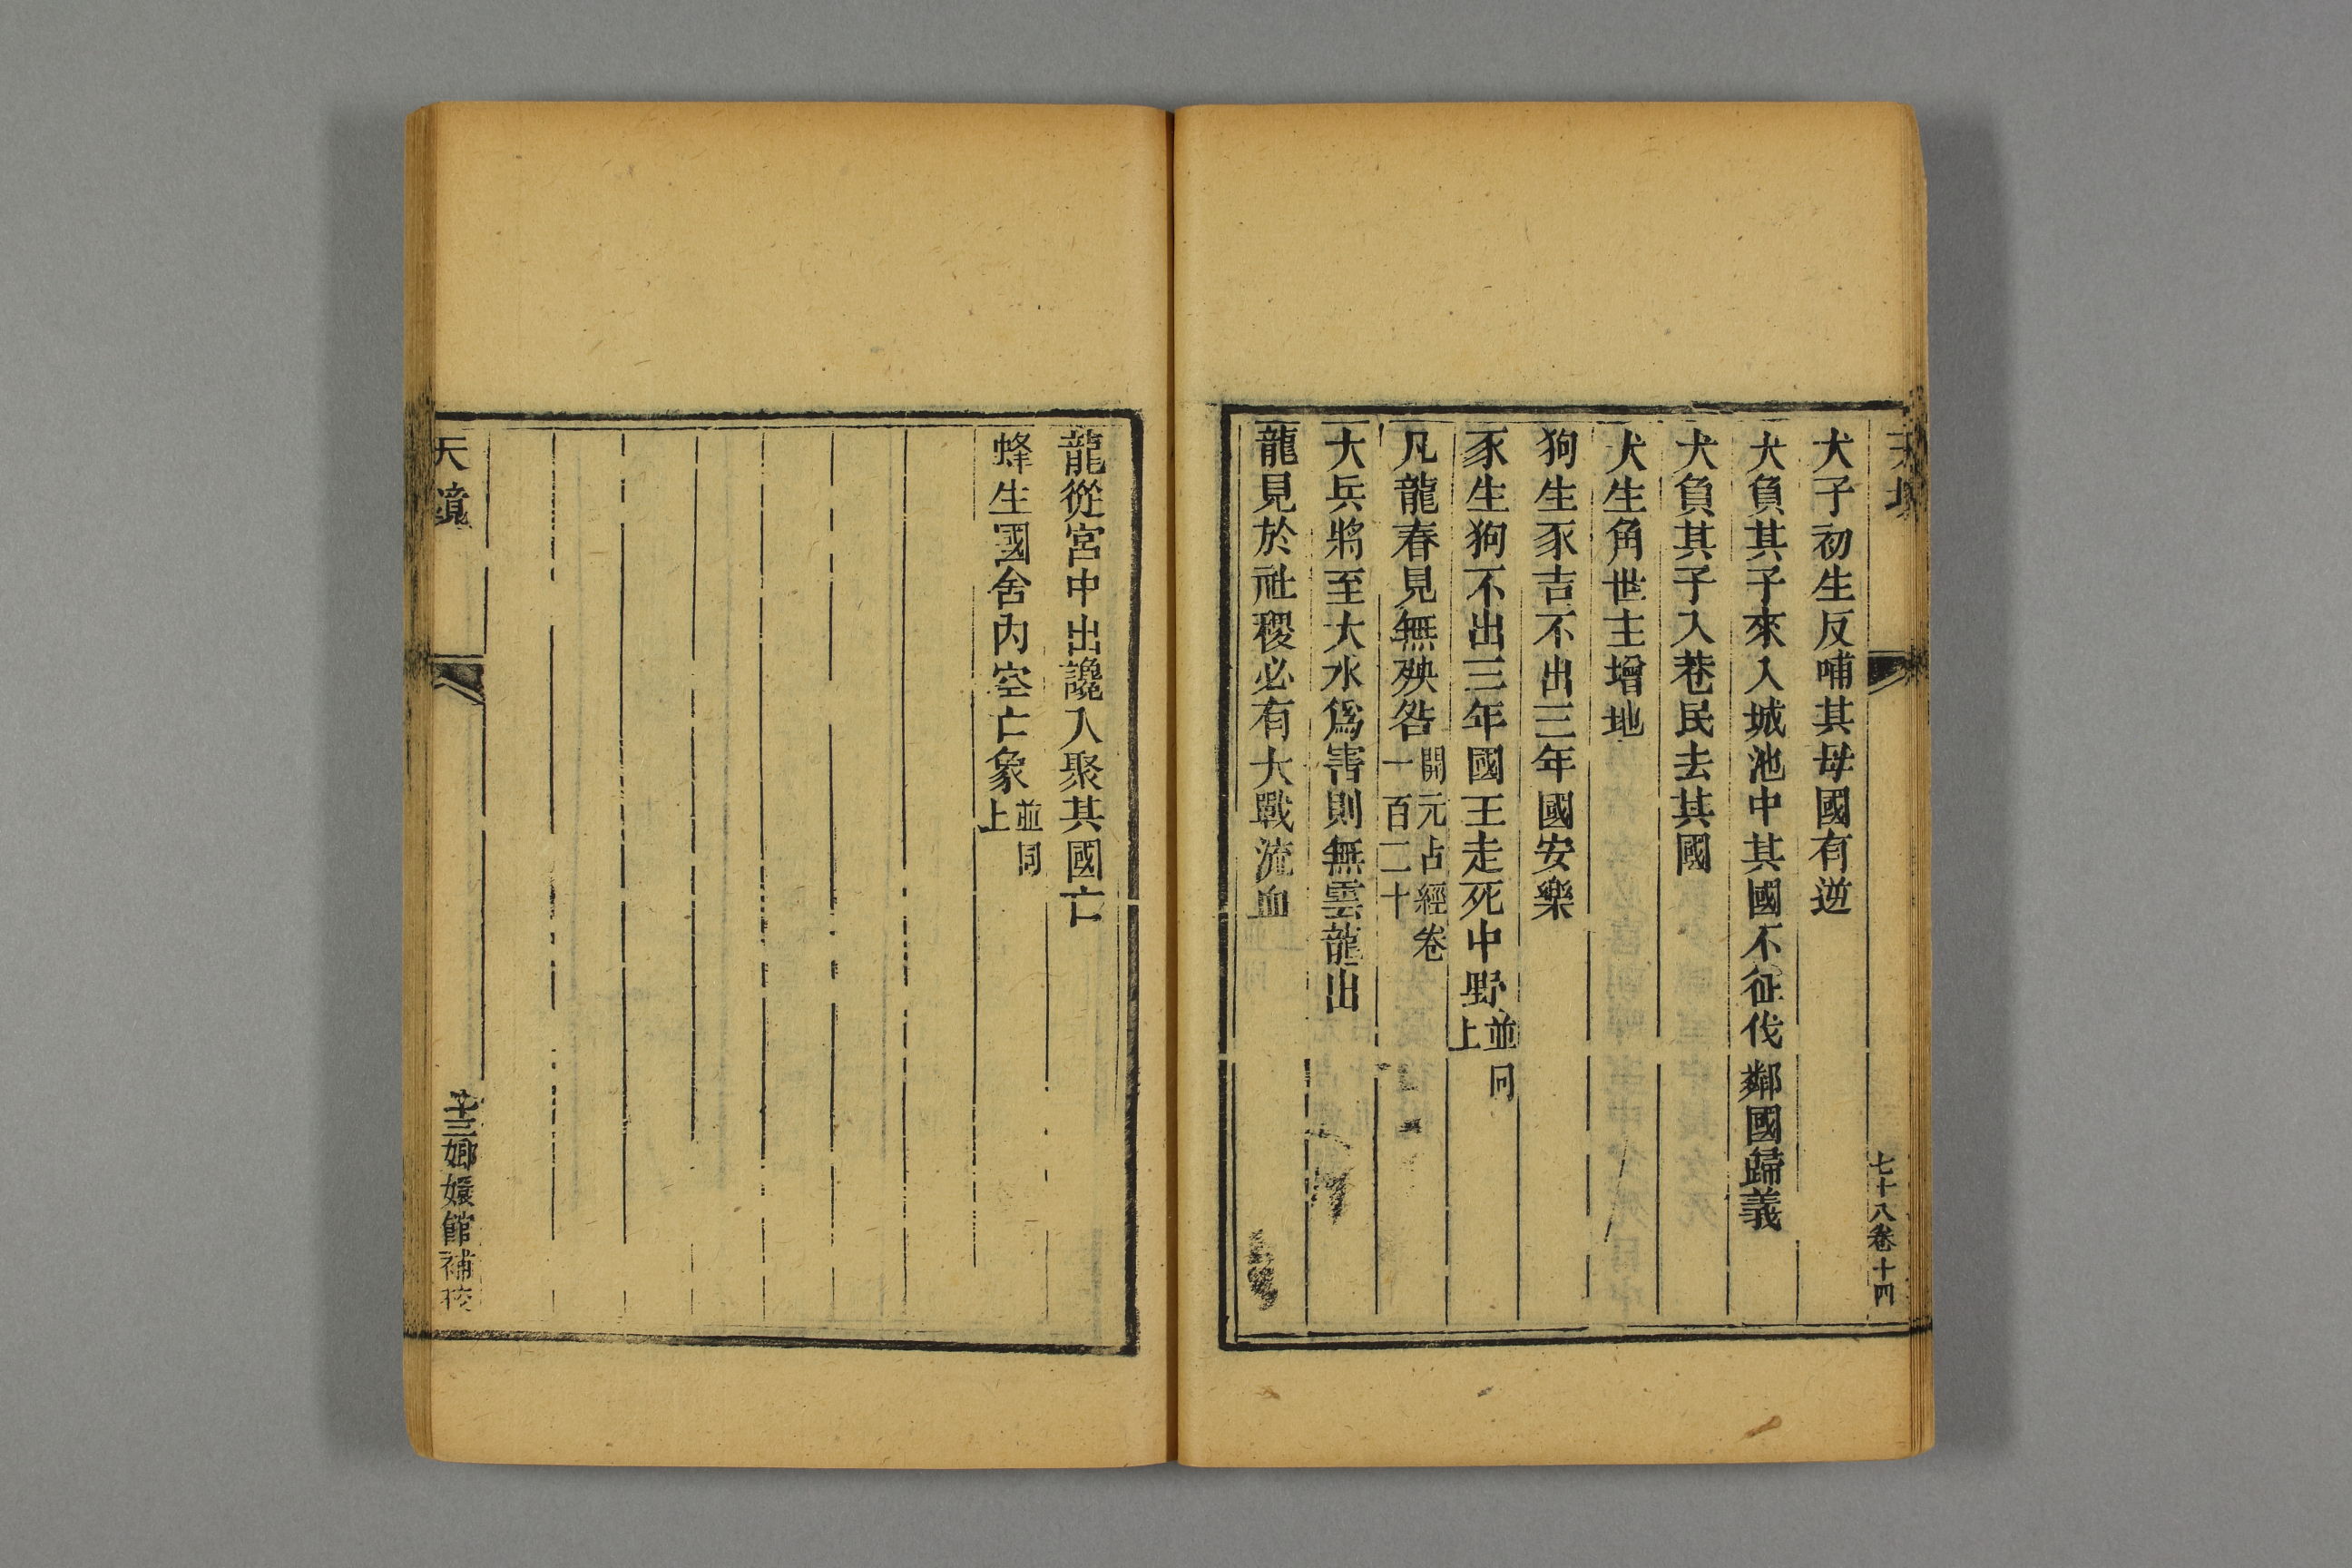 犬子初生反哺其母國有逆
犬負其子來入城池中其國不征伐鄰國歸義
犬負其子入巷民去其國
犬生角世主增地
狗生豕吉不出三年國安樂
豕生狗不出三年國王走死中野並同上
凡龍春見無殃咎開元占經卷一百二十
大兵將至大水爲害則無雲龍出
龍見於社稷必有大戰流血
七十八卷 十四
龍從宮中出讒入聚其國亡
蜂生國舍內空亡象並同上
天鏡
嫏嬛館補校